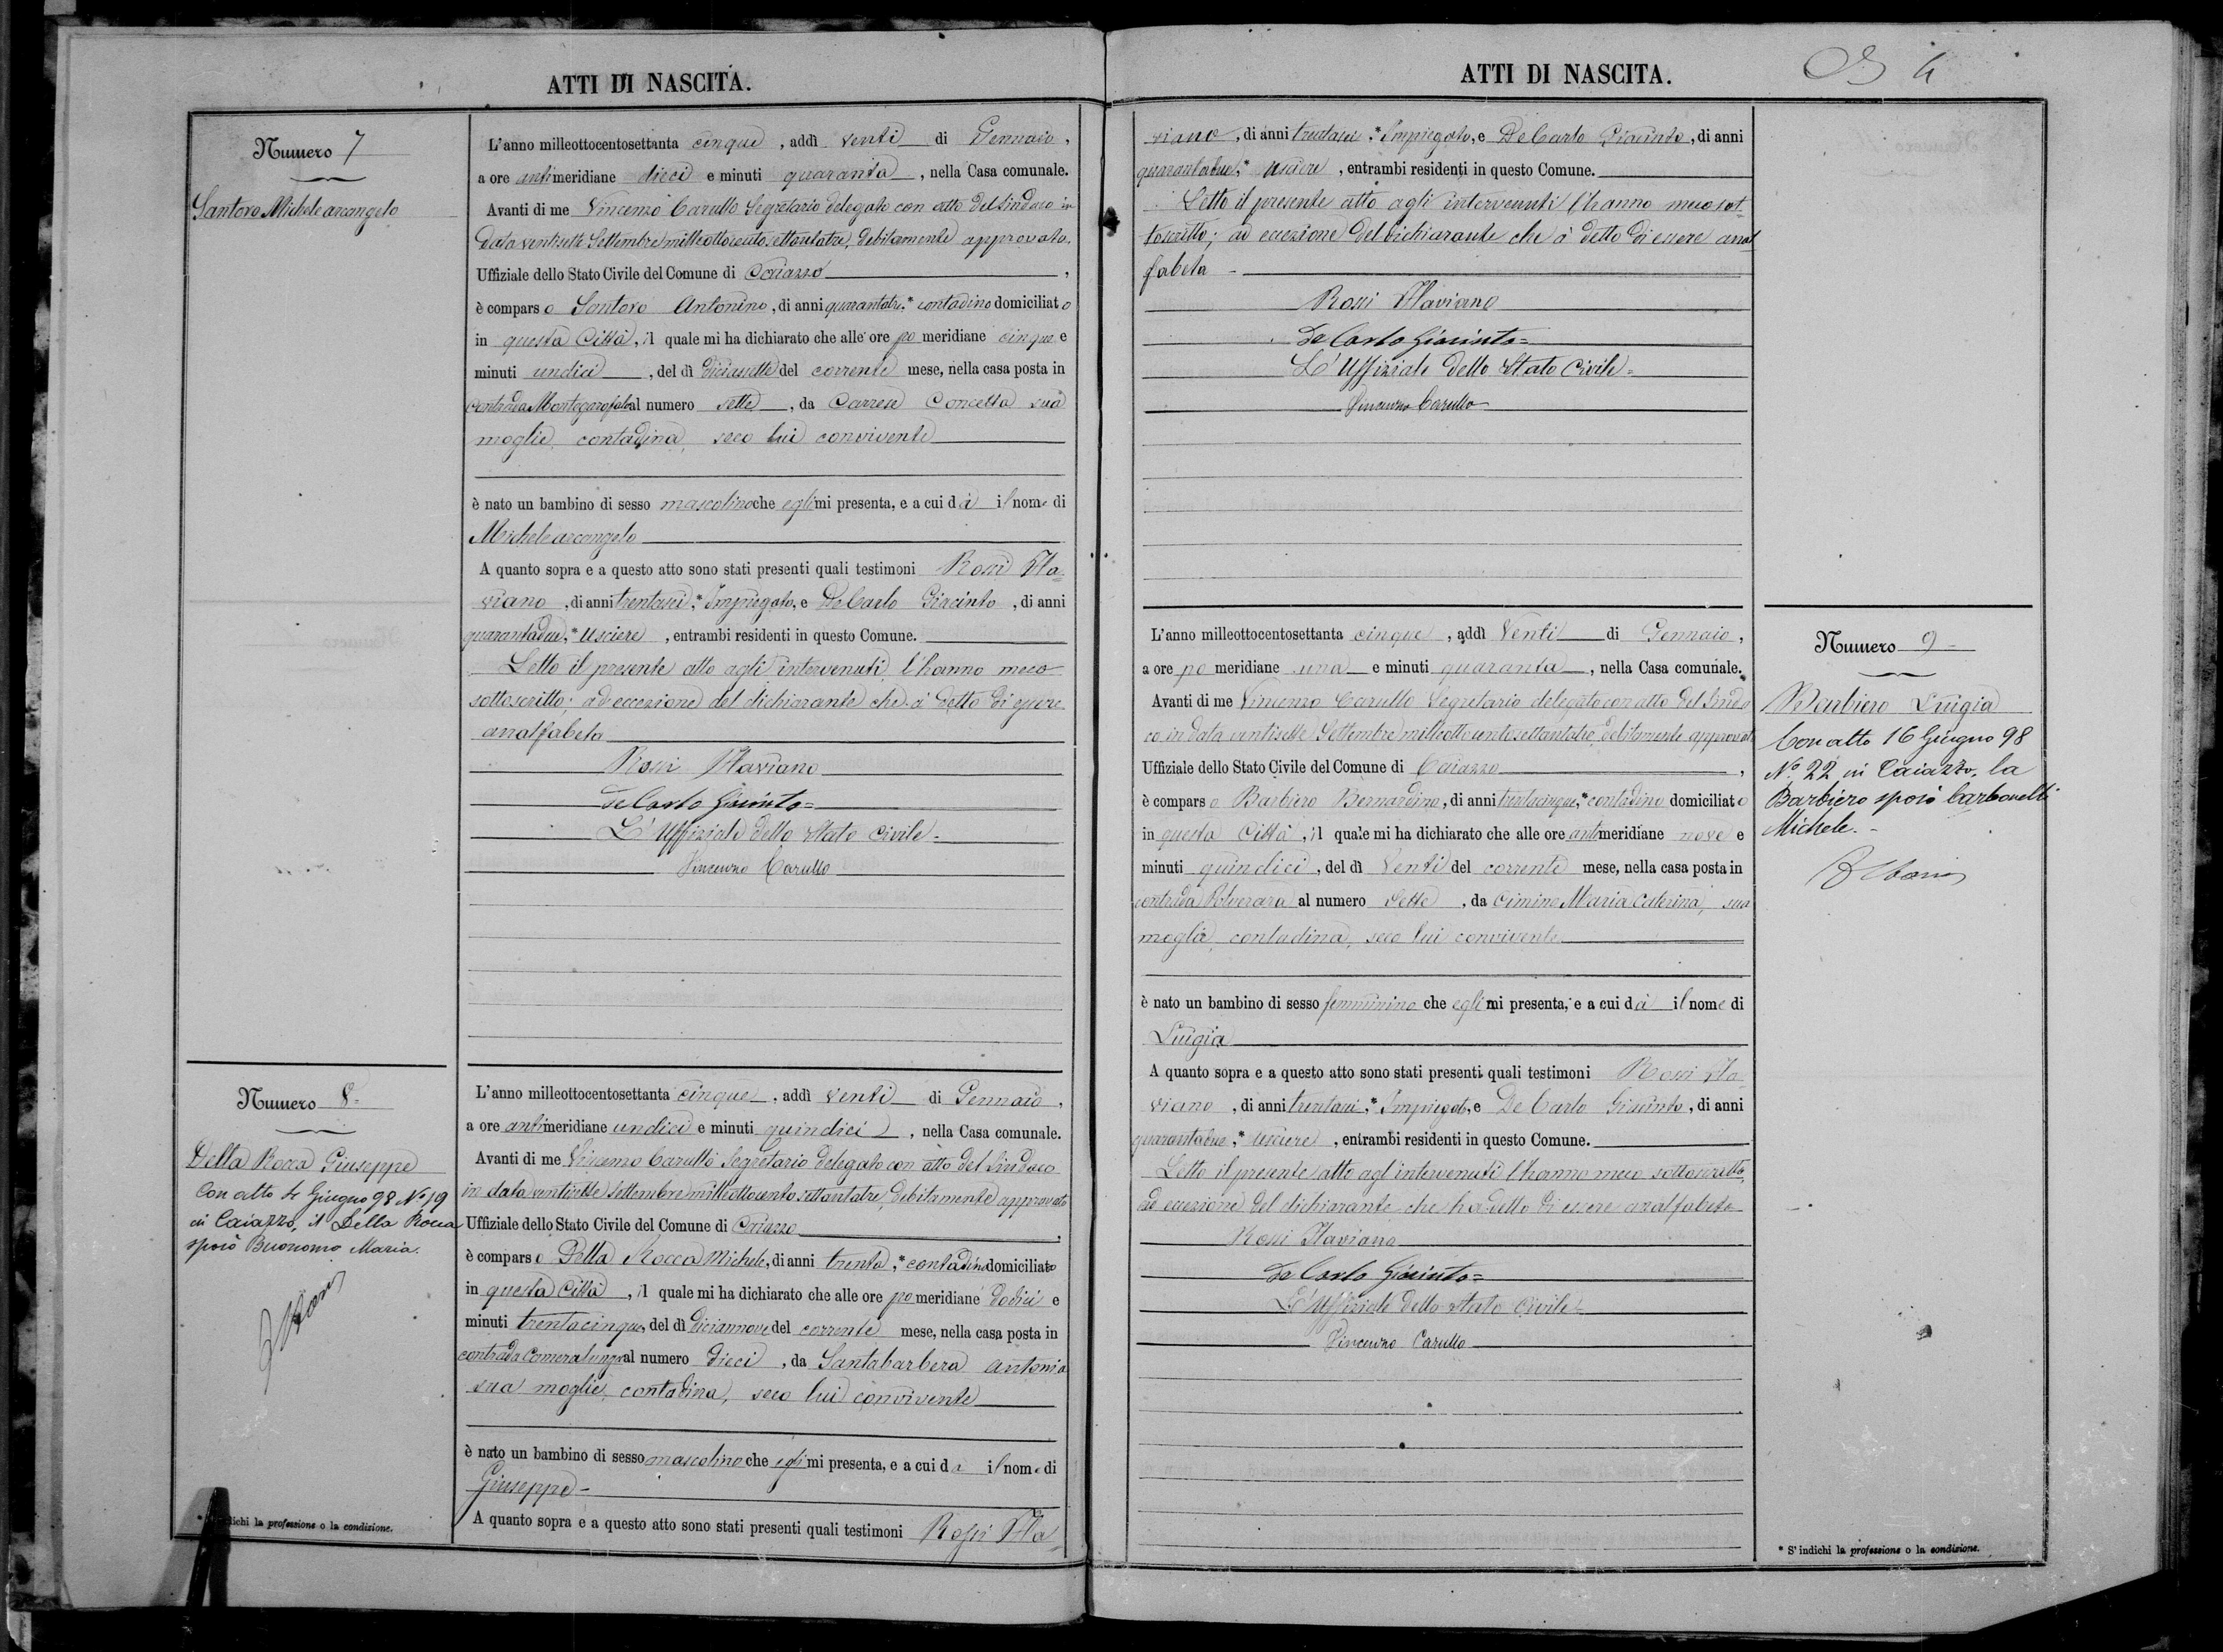 ATTI DI NASCITA.
Numero 7
Santoro Michelearcangelo
L'anno milleottocentosettanta cinque, addì venti di Gennaio,
a ore antimeridiane dieci e minuti quaranta, nella Casa comunale.
Avanti di me Vincenzo Carullo Segretario delegato con atto del Sindaco in
data ventisette Settembre milleottocentosettantatre, debitamente approvato.
Uffiziale dello Stato Civile del Comune di Caiazzo,
è comparso Santoro Antonino, di anni quarantatre,* contadino domiciliato
in questa Città, il quale mi ha dichiarato che alle ore pomeridiane cinque e
minuti undici, del dì diciassette del corrente mese, nella casa posta in
contrada Montegarofalo al numero sette, da Carrese Concetta sua
moglie, contadina, seco lui convivente
è nato un bambino di sesso mascolino che egli mi presenta, e a cui dà il nome di
Michelearcangelo
A quanto sopra e a questo atto sono stati presenti quali testimoni Rossi Fla=
viano, di anni trentasei,* Impiegato, e De Carlo Giacinto, di anni
quarantadue,* Usciere, entrambi residenti in questo Comune.
Letto il presente atto agli intervenuti l'hanno meco
sottoscritto; ad eccezione del dichiarante che à detto di essere
analfabeta
Rossi Flaviano
De Carlo Giacinto=
L'Uffiziale dello Stato Civile=
Vincenzo Carullo
Numero 8=
Della Rocca Giuseppe
Con atto 4 Giugno 98 No 19
in Caiazzo, il Della Rocca
sposò Buonomo Maria.
L'anno milleottocentosettanta cinque, addì venti di Gennaio,
a ore antimeridiane undici e minuti quindici, nella Casa comunale.
Avanti di me Vincenzo Carullo Segretario delegato con atto del Sindaco
in data ventisette Settembre milleottocentosettantatre, debitamente approvato
Uffiziale dello Stato Civile del Comune di Caiazzo,
è comparso Della Rocca Michele, di anni trenta,* contadino domiciliato
in questa Città, il quale mi ha dichiarato che alle ore pomeridiane dodici e
minuti trentacinque, del dì diciannove del corrente mese, nella casa posta in
contrada Cameralunga al numero dieci, da Santabarbera Antonia
sua moglie, contadina, seco lui convivente
è nato un bambino di sesso mascolino che egli mi presenta, e a cui dà il nome di
Giuseppe=
A quanto sopra e a questo atto sono stati presenti quali testimoni Rossi Fla=
dichi la professione o la condizione.
ATTI DI NASCITA.
4
viano, di anni trentasei,* Impiegato, e De Carlo Giacinto, di anni
quarantadue,* usciere, entrambi residenti in questo Comune.
Letto il presente atto agli intervenuti l'hanno meco sot=
toscritto; ad eccezione del dichiarante che à detto di essere anal
fabeta
Rossi Flaviano
De Carlo Giacinto=
L'Uffiziale dello Stato Civile=
Vincenzo Carullo
L'anno milleottocentosettanta cinque, addì Venti di Gennaio,
a ore pomeridiane una e minuti quaranta, nella Casa comunale.
Avanti di me Vincenzo Carullo Segretario delegato con atto del Sinda
co in data ventisette Settembre milleottocentosettantatre, debitamente approvato
Uffiziale dello Stato Civile del Comune di Caiazzo,
è comparso Barbiero Bernardino, di anni trentacinque,* contadino domiciliato
in questa Città, il quale mi ha dichiarato che alle ore antimeridiane nove e
minuti quindici, del dì Venti del corrente mese, nella casa posta in
contrada Polverara al numero Sette, da Cimino Maria Caterina, sua
moglie, contadina, seco lui convivente
è nato un bambino di sesso femminino che egli mi presenta, e a cui dà il nome di
Luigia
A quanto sopra e a questo atto sono stati presenti quali testimoni Rossi Fla
viano, di anni trentasei,* Impiegato, e De Carlo Giacinto, di anni
quarantadue,* usciere, entrambi residenti in questo Comune.
Letto il presente atto agl'intervenuti l'hanno meco sottoscritto,
ad eccezione del dichiarante che ha detto di essere analfabeta
Rossi Flaviano
De Carlo Giacinto=
L'Uffiziale dello Stato Civile=
Vincenzo Carullo
Numero 9=
Barbiero Luigia
Con atto 16 Giugno 98
No 22 in Caiazzo, la
Barbiero sposò Carbonelli
Michele.-
* S'indichi la professione o la condizione.